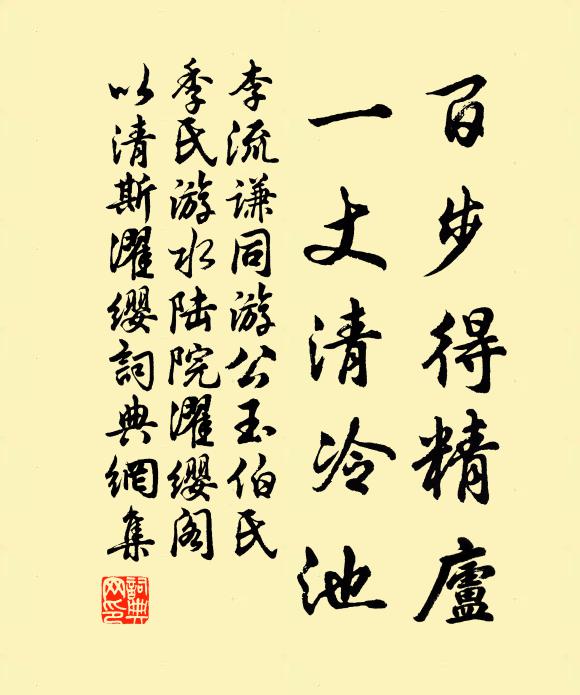 百步得精廬
一丈清冷池
李流謙同游公玉伯氏
季氏游水陆院濯缨阁
以清斯濯缨詞典網集
詞典网印